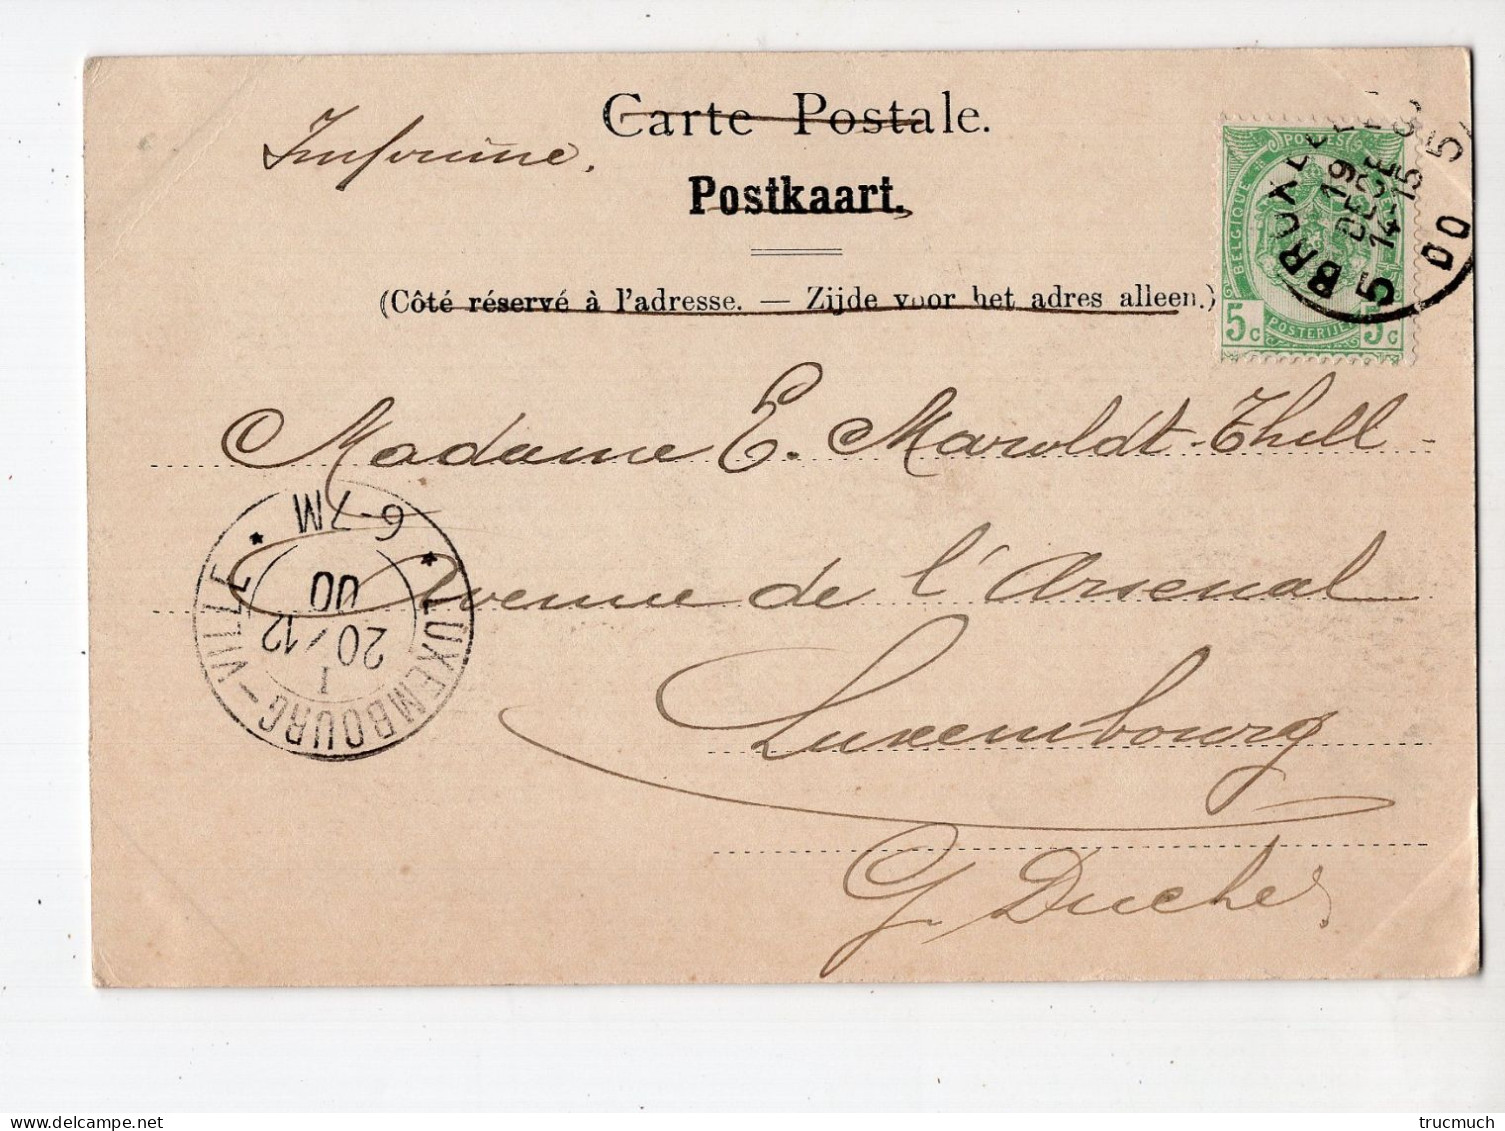 Carte Postale.
Imprimé.
Postkaart.
(Côté réservé à l'adresse. — Zijde voor het adres alleen.)
BELGIQUE
POSTES
POSTERIJEN
5c 5c
5 BRUXELLES 5
19
DECE
14-15
00
Madame E. Maroldt-Thill
Avenue de l'Arsenal
Luxembourg
G. Duché
LUXEMBOURG-VILLE
6-7M
20/12
00
1
trucmuch